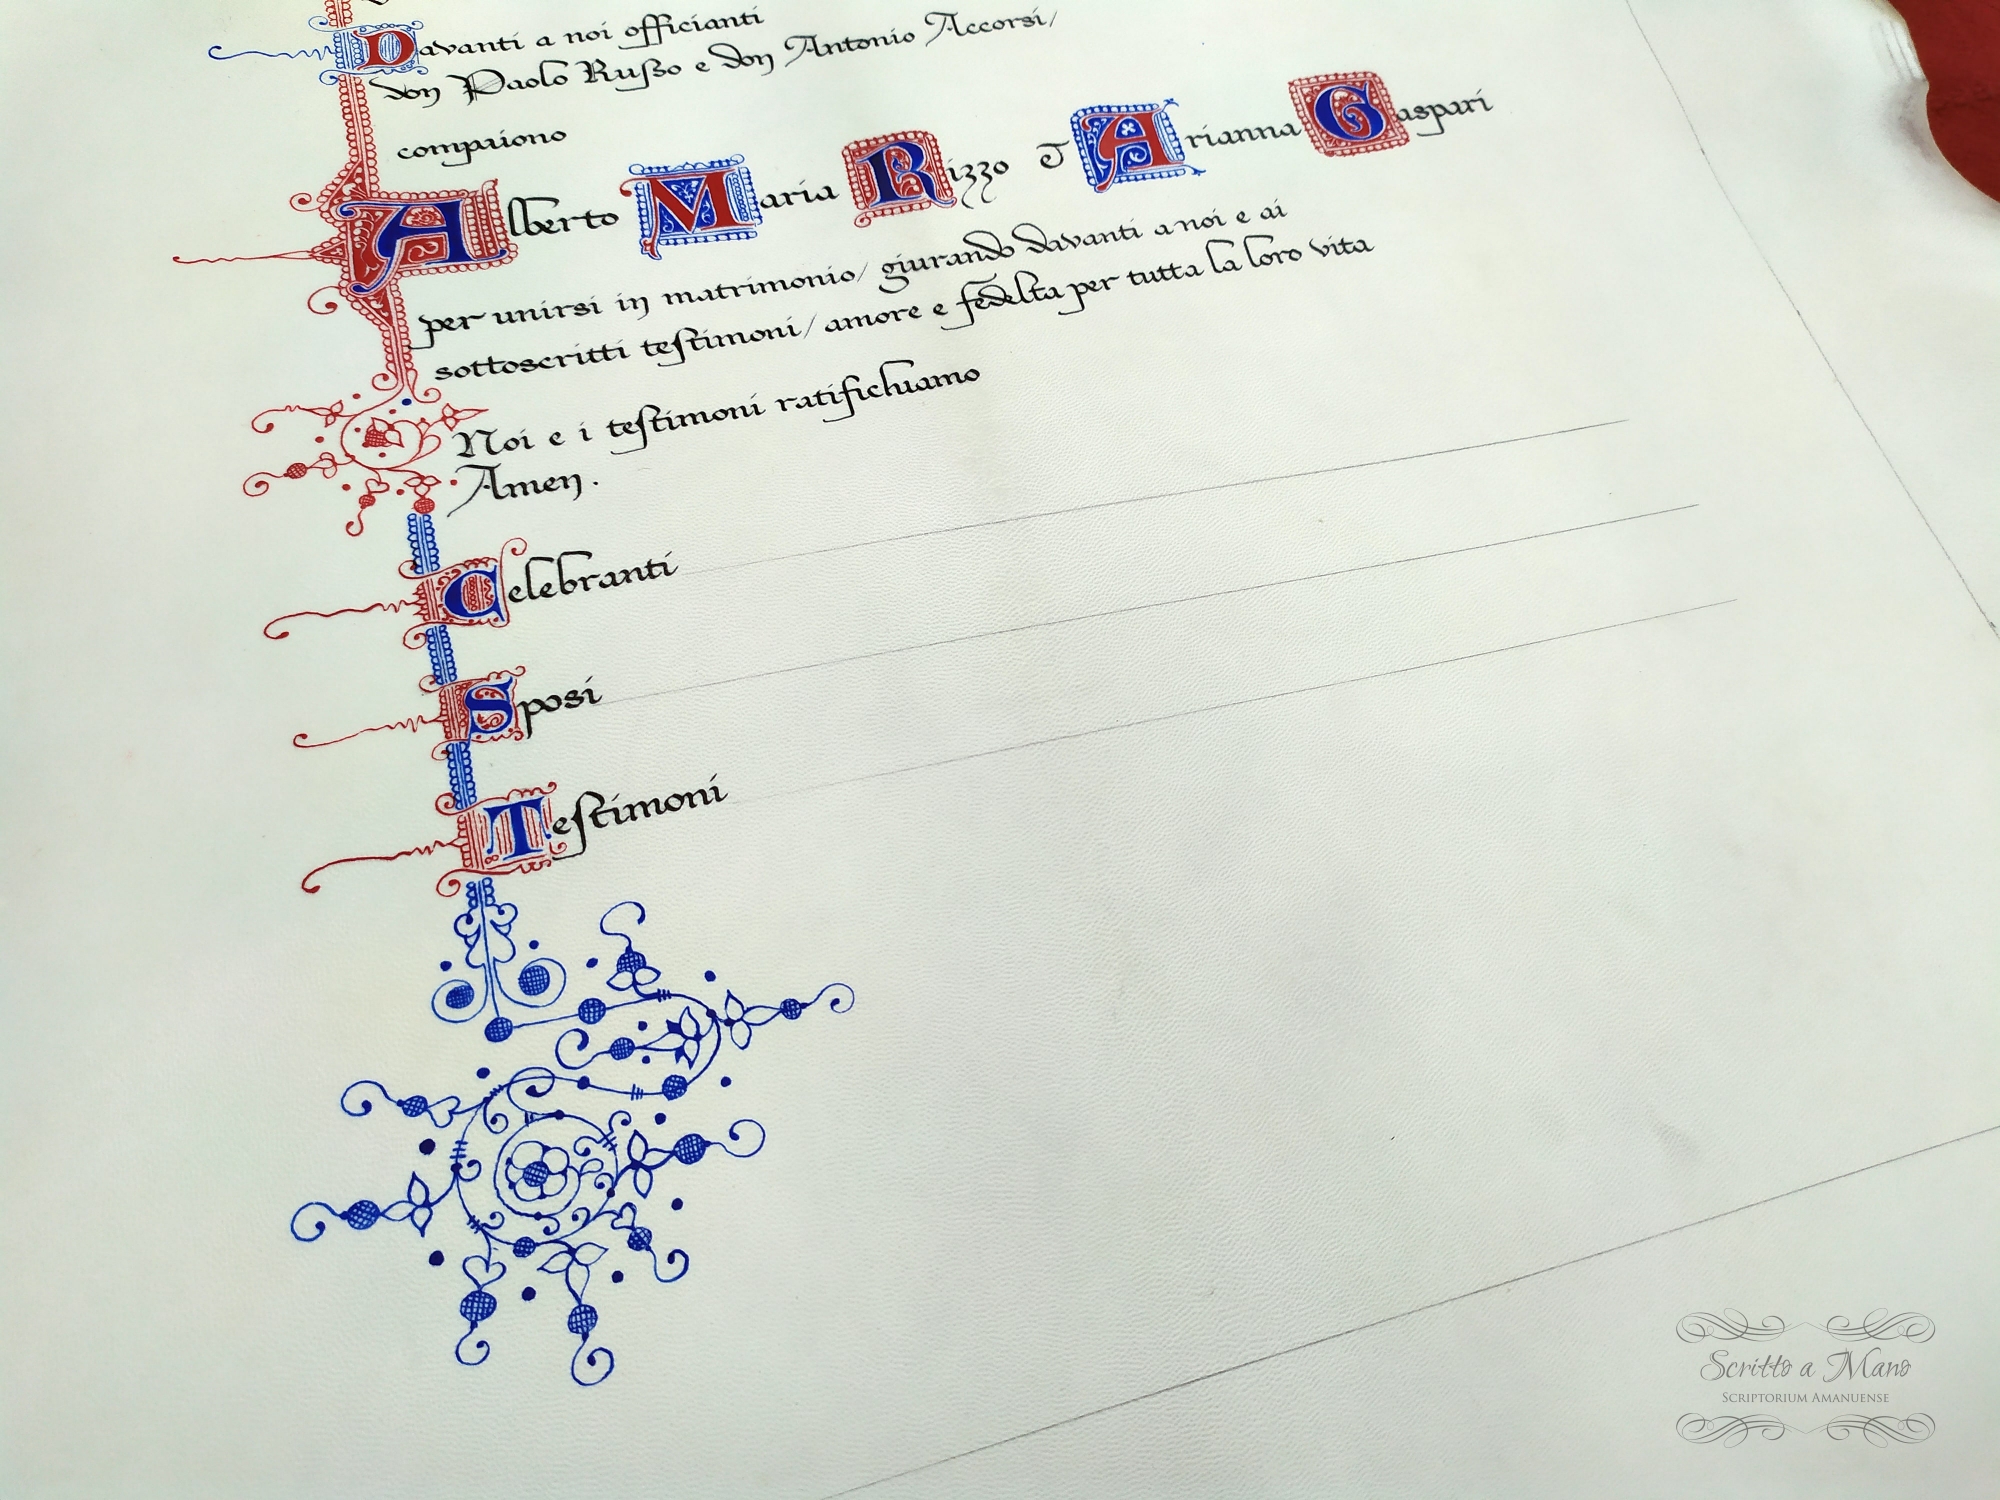 Davanti a noi officianti
don Paolo Rußo e don Antonio Accorsi/
compaiono
Alberto Maria Rizzo & Arianna Gaspari
per unirsi in matrimonio/ giurando davanti a noi e ai
sottoscritti testimoni/ amore e fedelta per tutta la loro vita
Noi e i testimoni ratifichiamo
Amen.
Celebranti
Sposi
Testimoni
Scritto a Mano
Scriptorium Amanuense